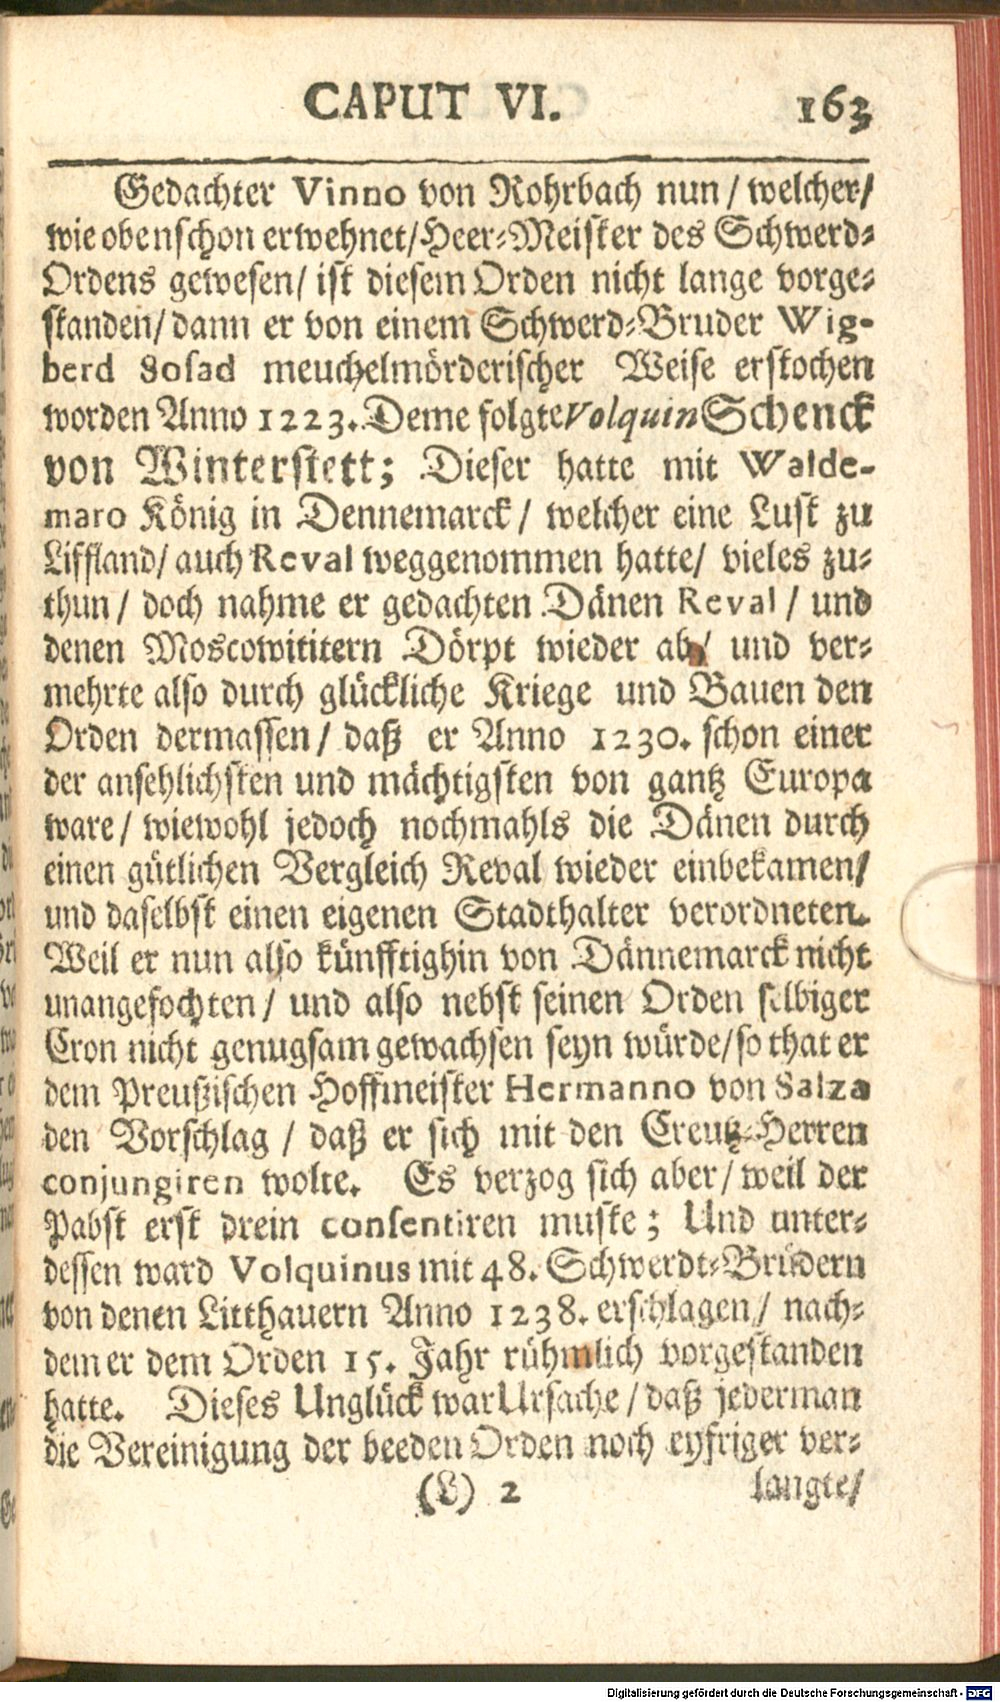 CAPUT VI. 163
Gedachter Vinno von Rohrbach nun / welcher/
wie oben schon erwehnet/Heer-Meister des Schwerd-
Ordens gewesen/ ist diesem Orden nicht lange vorge-
standen/ dann er von einem Schwerd-Bruder Wig-
berd Sosad meuchelmörderischer Weise erstochen
worden Anno 1223. Deme folgte Volquin Schenck
von Winterstett; Dieser hatte mit Walde-
maro König in Dennemarck / welcher eine Lust zu
Liffland/ auch Reval weggenommen hatte/ vieles zu-
thun / doch nahme er gedachten Dänen Reval / und
denen Moscowititern Dörpt wieder ab/ und ver-
mehrte also durch glückliche Kriege und Bauen den
Orden dermassen / daß er Anno 1230. schon einer
der ansehlichsten und mächtigsten von gantz Europa
ware / wiewohl jedoch nochmahls die Dänen durch
einen gütlichen Vergleich Reval wieder einbekamen/
und daselbst einen eigenen Stadthalter verordneten.
Weil er nun also künfftighin von Dännemarck nicht
unangefochten / und also nebst seinen Orden selbiger
Cron nicht genugsam gewachsen seyn würde/ so that er
dem Preußischen Hoffmeister Hermanno von Salza
den Vorschlag / daß er sich mit den Creutz-Herren
conjungiren wolte. Es verzog sich aber / weil der
Pabst erst drein consentiren muste; Und unter-
dessen ward Volquinus mit 48. Schwerdt-Brüdern
von denen Litthauern Anno 1238. erschlagen / nach-
dem er dem Orden 15. Jahr rühmlich vorgestanden
hatte. Dieses Unglück war Ursache / daß jederman
die Vereinigung der beeden Orden noch eyfriger ver-
(L) 2 langte/
Digitalisierung gefördert durch die Deutsche Forschungsgemeinschaft - DFG